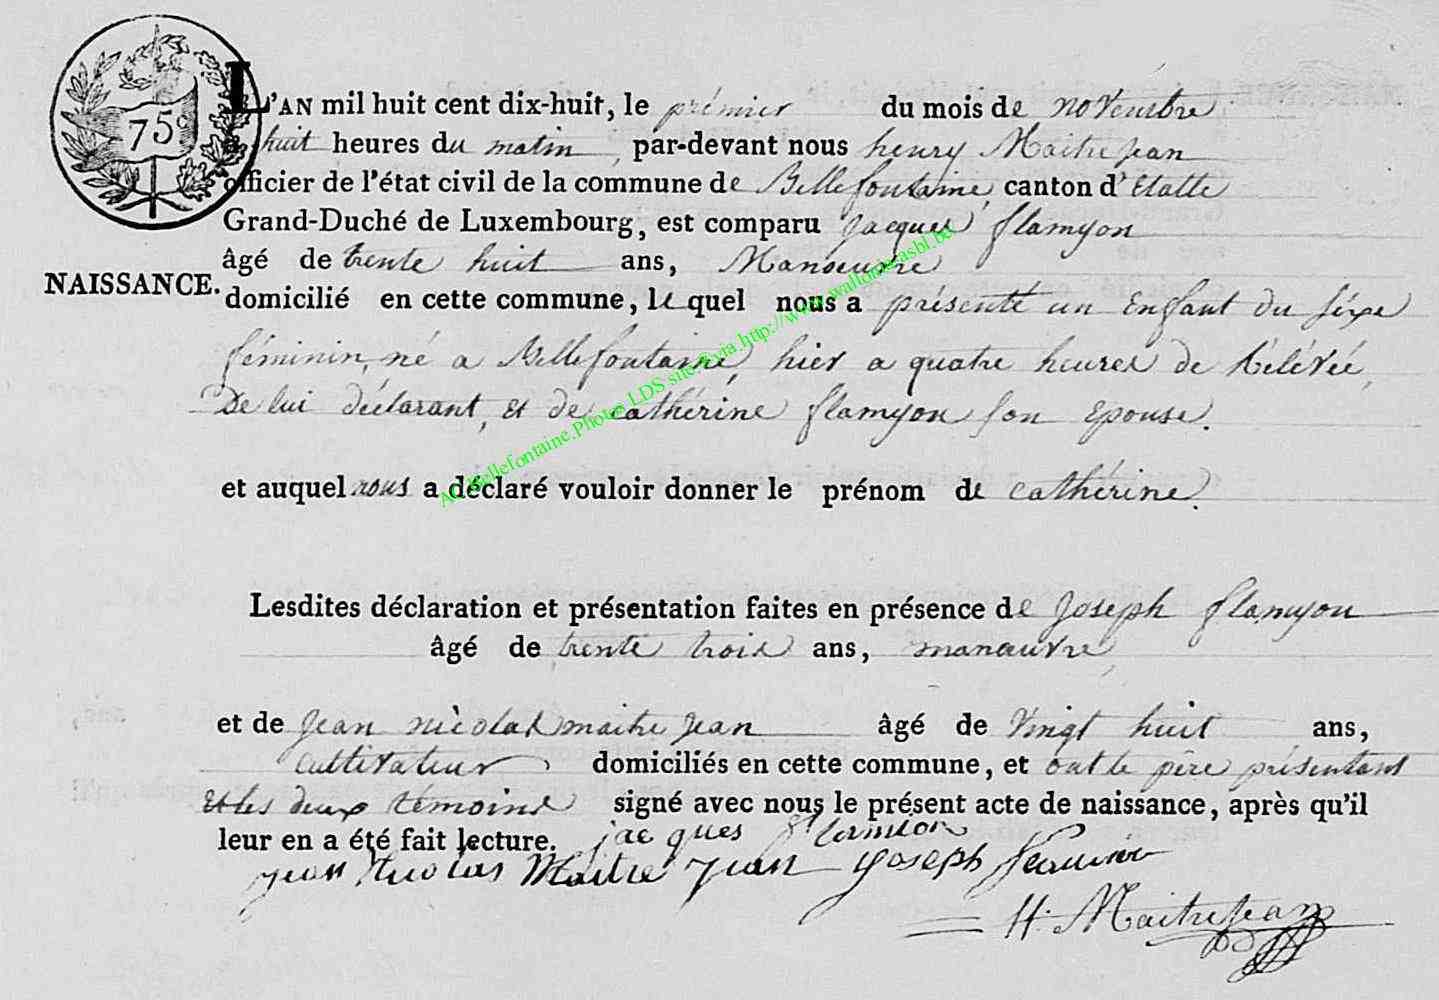 75c
L'AN mil huit cent dix-huit, le prémier du mois de novembre
a huit heures du matin, par-devant nous henry Maitrejean
officier de l'état civil de la commune de Bellefontaine, canton d'Etalle
Grand-Duché de Luxembourg, est comparu Jacques flamyon
âgé de trente huit ans, Manoeuvre
NAISSANCE.
domicilié en cette commune, lequel nous a présenté un Enfant du séxe
féminin, né a Bellefontaine, hier a quatre heures de rélévée,
De lui déclarant, et de cathérine flamyon son Epouse.
et auquel nous a déclaré vouloir donner le prénom de cathérine.
Lesdites déclaration et présentation faites en présence de Joseph flamyon
âgé de trente trois ans, manoeuvre
et de Jean nicolas maitre jean âgé de vingt huit ans,
cultivateur, domiciliés en cette commune, et ont le père présentant
et les deux témoins signé avec nous le présent acte de naissance, après qu'il
leur en a été fait lecture. jacques
jean Nicolas Maitre jean joseph
H. Maitrejean
AC Bellefontaine.Photos LDS site Fvia http://www.walloniasasbl.be/